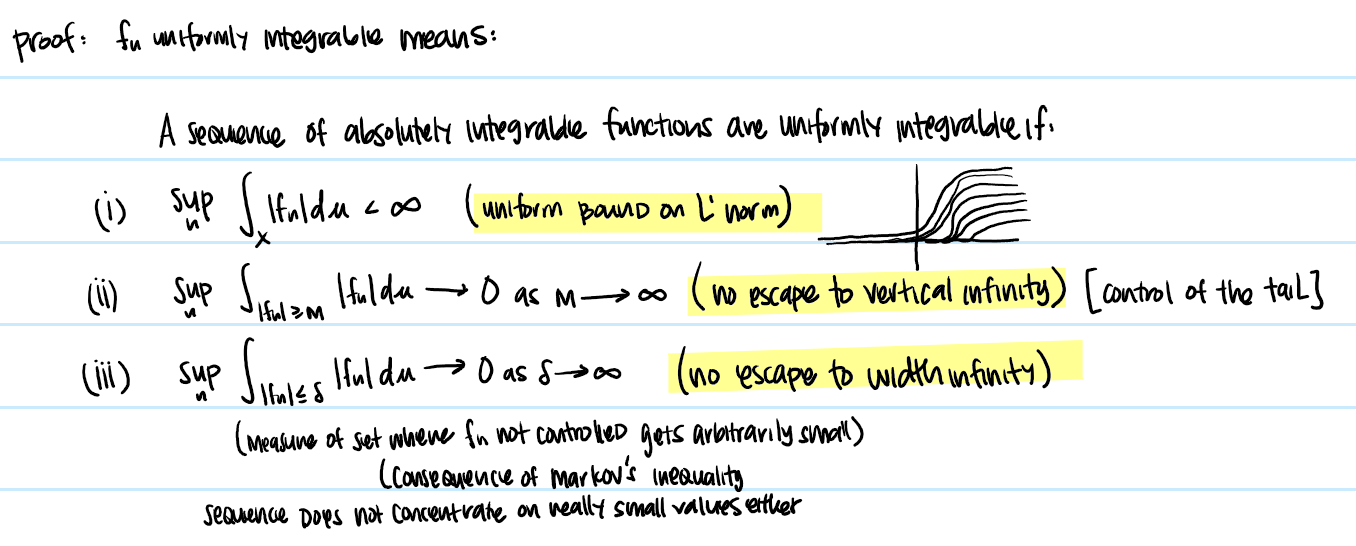 proof: fn uniformly integrable means:
A sequence of absolutely integrable functions are uniformly integrable if:
(i) sup_n ∫_X |fn| dμ < ∞ (uniform bound on L¹ norm)
(ii) sup_n ∫_{|fn| ≥ M} |fn| dμ → 0 as M → ∞ (no escape to vertical infinity) [control of the tail]
(iii) sup_n ∫_{|fn| ≤ δ} |fn| dμ → 0 as δ → ∞ (no escape to width infinity)
(measure of set where fn not controlled gets arbitrarily small)
(consequence of Markov's inequality
sequence does not concentrate on really small values either